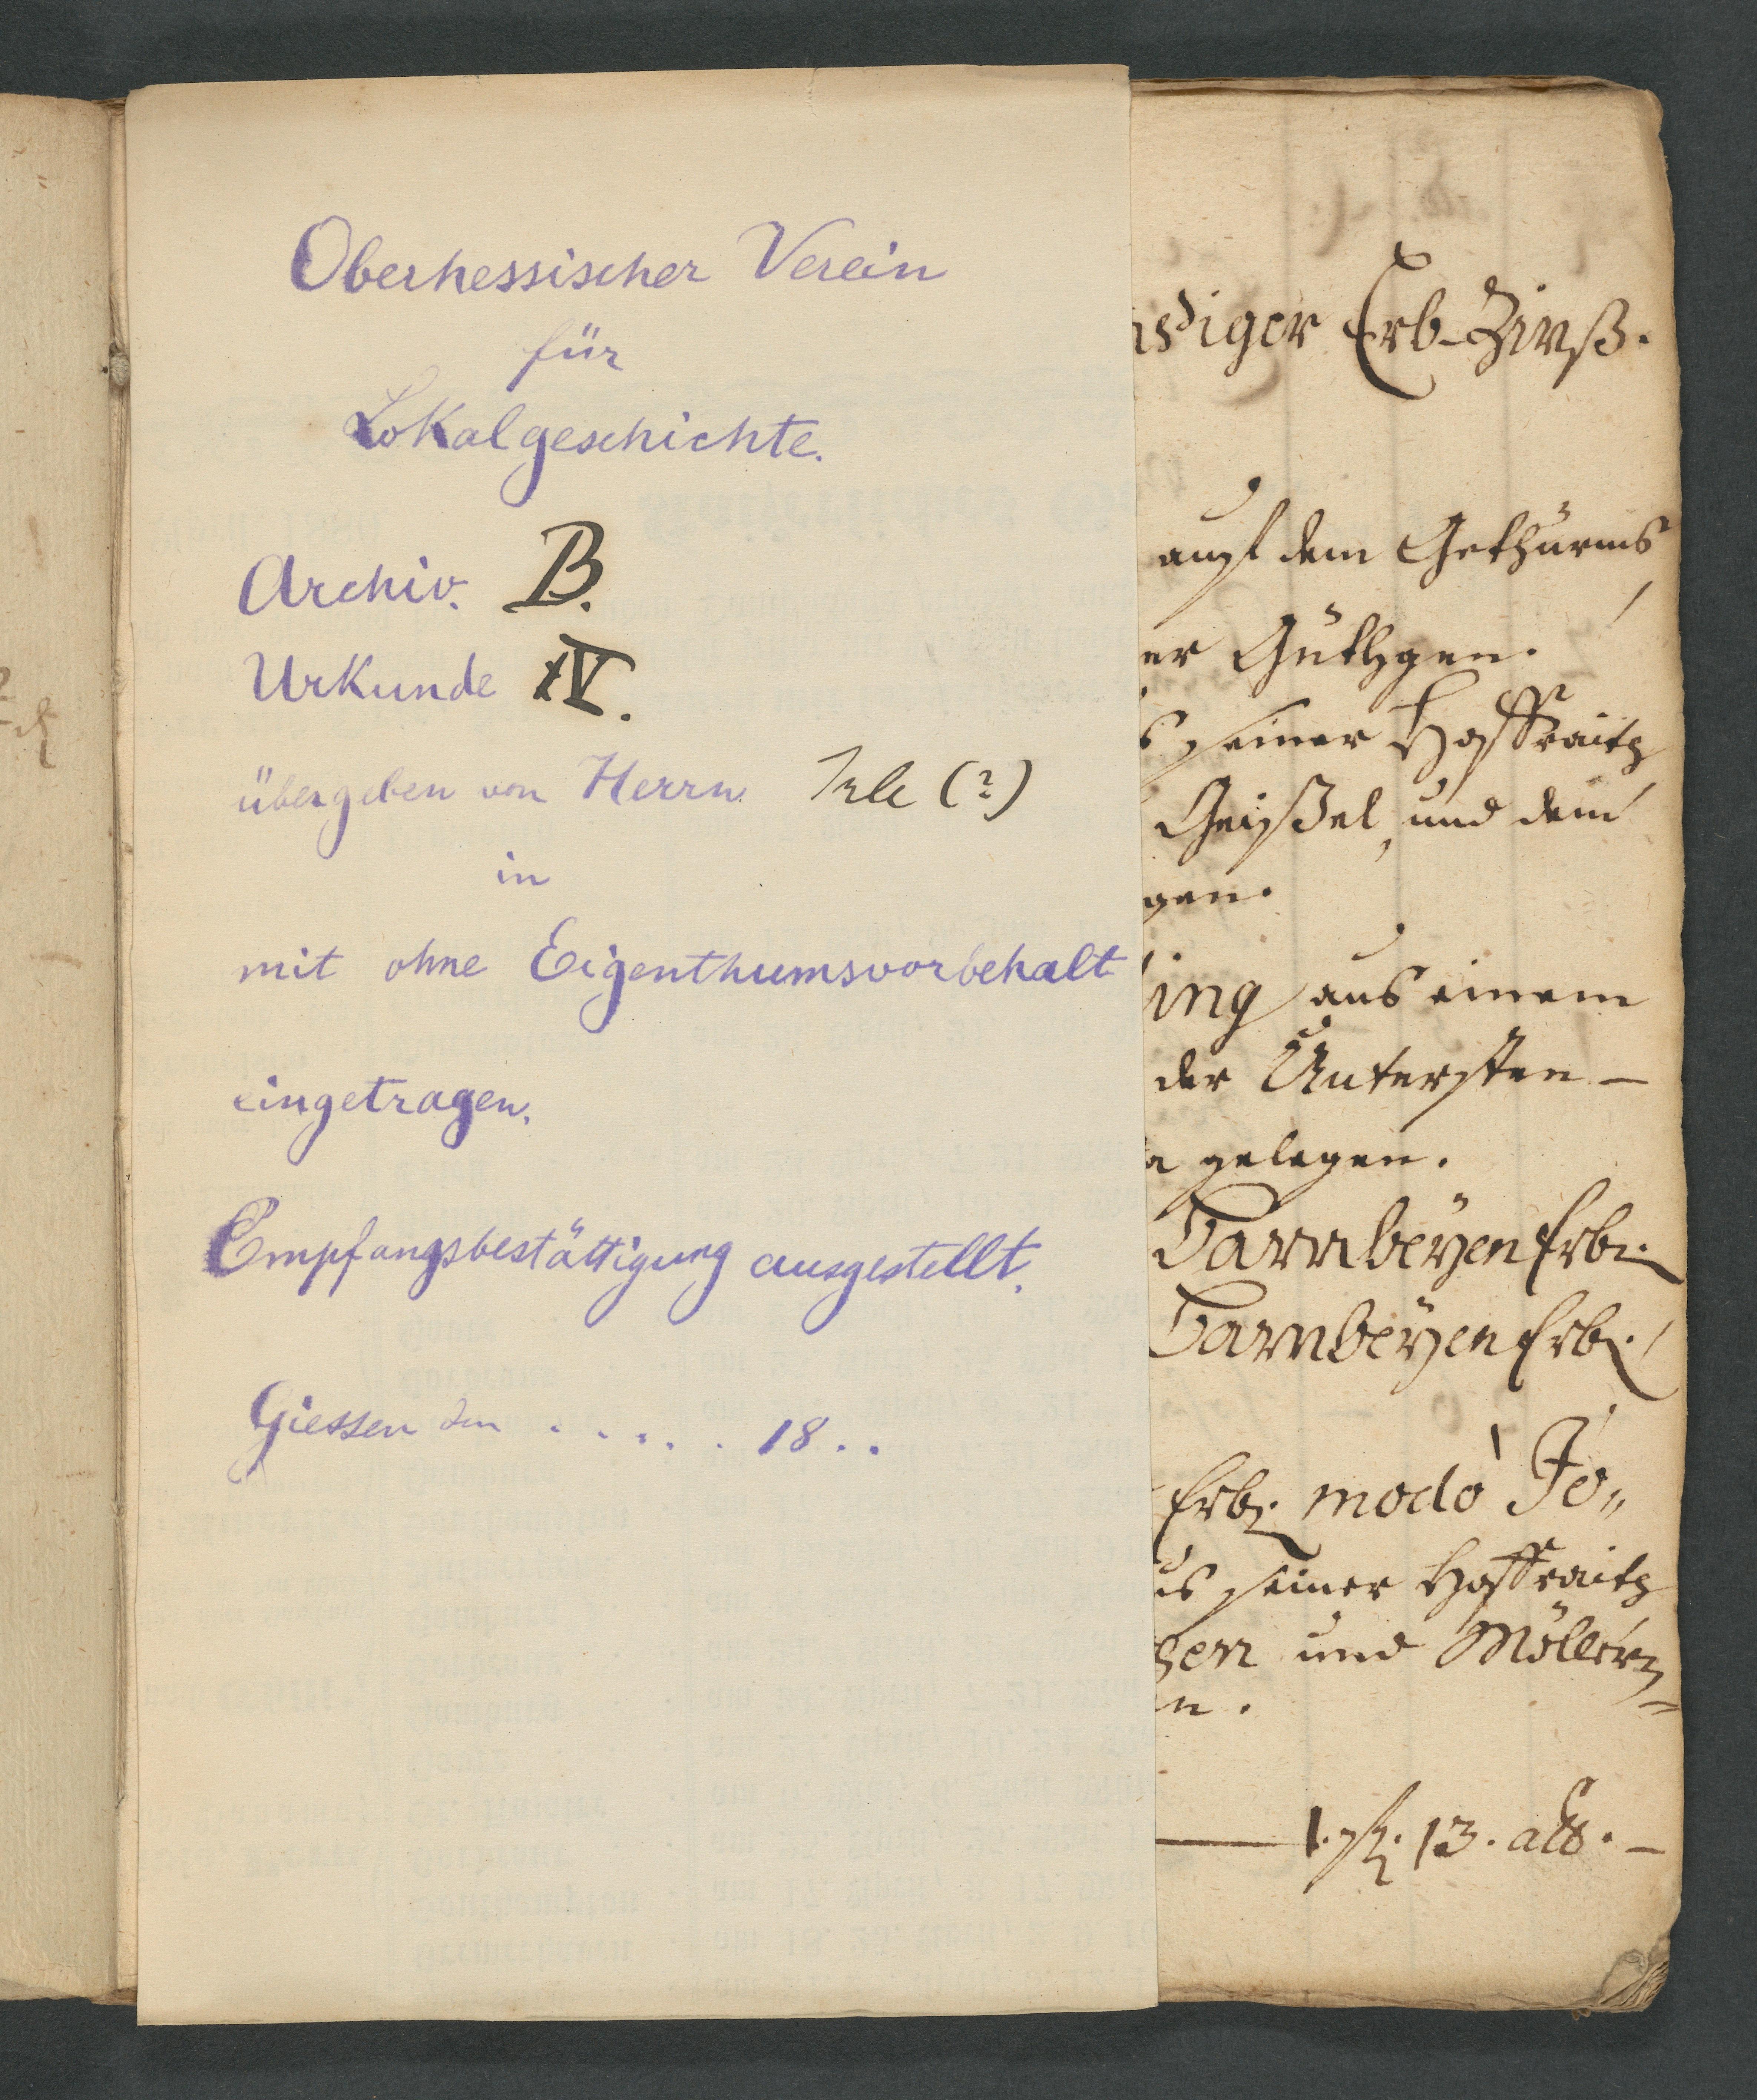 Oberhessischer Verein
für
Lokalgeschichte.
Archiv. B.
Urkunde IV.
übergeben von Herrn Irle (?)
in
mit ohne Eigenthumsvorbehalt
eingetragen.
Empfangsbestättigung ausgestellt.
Giessen den . . . . . . 18 . .
diger Erb-Zinß.
auf dem Gethürms
er Güthgen.
s seiner Hoffraitz
Geißel, und dem
gen.
ing aus einem
der Untersten -
gelegen.
Erb.
Erb.
Erb. modò Jo„
us seiner Hoffraitz
und Möllers
n.
1. fl. 13. alb. -